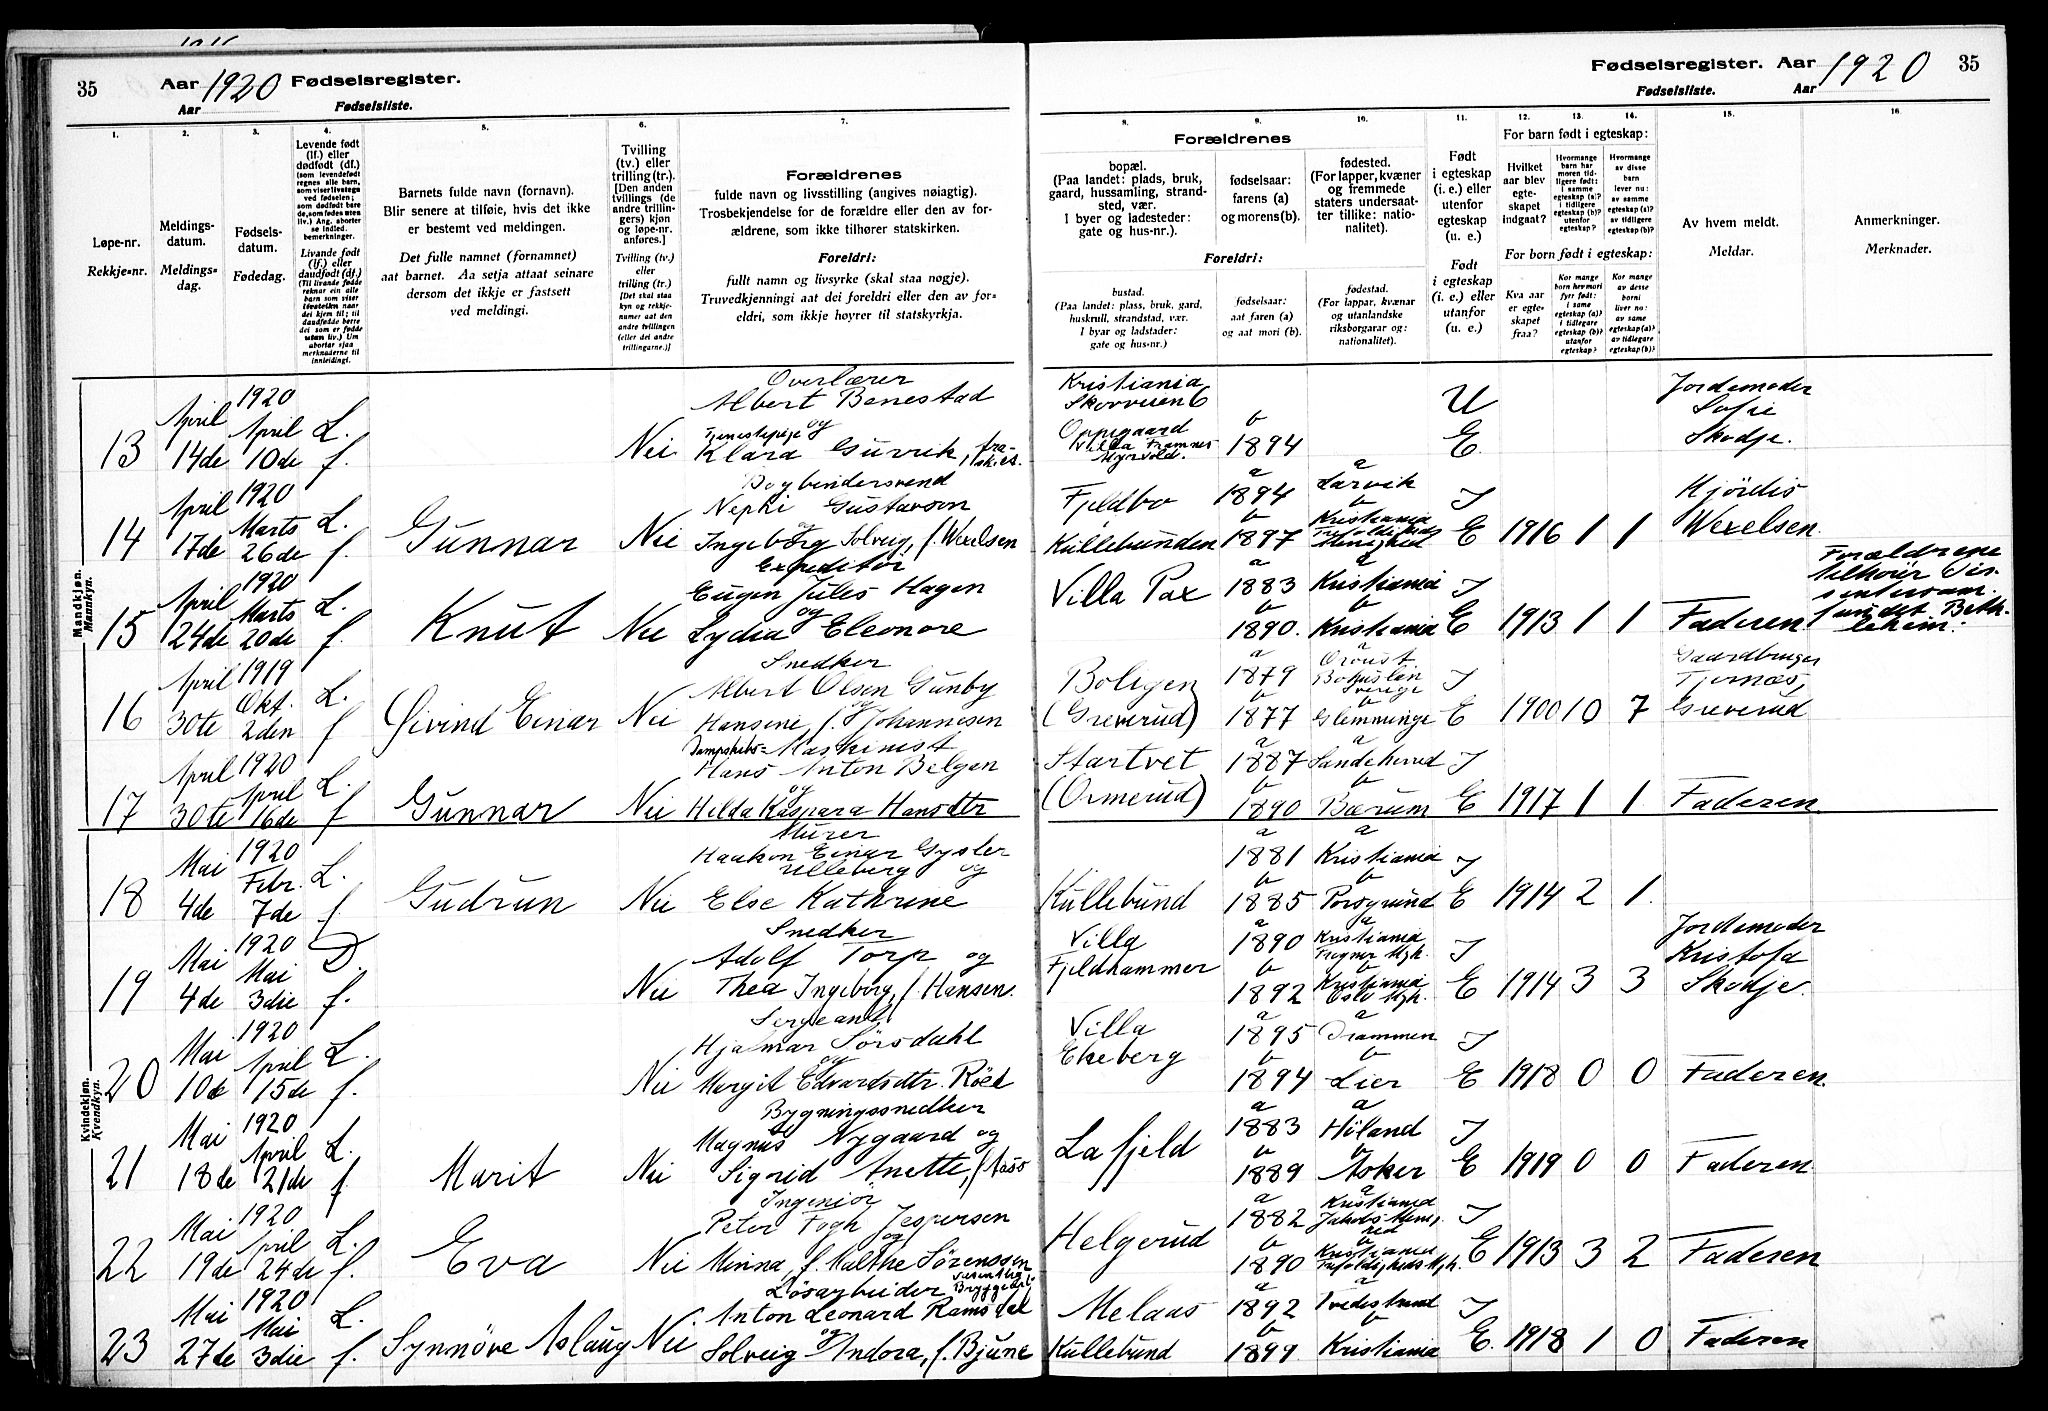 35
Aar 1920 Fødselsregister.
Aar Fødselsliste.
Fødselsregister. Aar 1920
35
Fødselsliste. Aar
1.
Løpe-nr.
Rekkje-nr.
2.
Meldings-
datum.
Meldings-
dag.
3.
Fødsels-
datum.
Fødedag.
4.
Levende født
(lf.) eller
dødfødt (df.)
5.
Barnets fulde navn (fornavn).
Blir senere at tilføie, hvis det ikke
er bestemt ved meldingen.
Det fulle namnet (fornamnet)
aat barnet. Aa setja attaat seinare
dersom det ikkje er fastsett
ved meldingi.
6.
Tvilling
(tv.) eller
trilling (tr.).
[Den anden
tvillings (de
andre trillin-
gers) kjøn
og løpe-nr.
anføres.]
Tvilling (tv.)
eller
trilling (tr.)
7.
Forældrenes
fulde navn og livsstilling (angives nøiagtig).
Trosbekjendelse for de forældre eller den av for-
ældrene, som ikke tilhører statskirken.
Foreldri:
fullt namn og livsyrke (skal staa nøgje).
Truvedkjenningi aat dei foreldri eller den av for-
eldri, som ikkje høyrer til statskyrkja.
8.
9.
10.
Forældrenes
bopæl.
(Paa landet: plads, bruk,
gaard, hussamling, strand-
sted, vær.
I byer og ladesteder:
gate og hus-nr.).
fødselsaar:
farens (a)
og morens (b).
fødested.
(For lapper, kvæner
og fremmede
staters undersaat-
ter tillike: natio-
nalitet).
Foreldri:
bustad.
(Paa landet: plass, bruk, gard,
huskrull, strandstad, vær.
I byar og ladstader:
gate og hus-nr.)
fødselsaar:
aat faren (a)
og aat mori (b).
fødestad.
(For lappar, kvænar
og utanlandske
riksborgarar og:
nationalitet).
11.
Født
i egteskap
(i. e.) eller
utenfor
egteskap
(u. e.)
Født
i egteskap
(i. e.) eller
utanfor
(u. e.)
12.
13.
14.
For barn født i egteskap:
Hvilket
aar blev
egte-
skapet
indgaat?
For born født i egteskap:
Kva aar
er egte-
skapet
fraa?
15.
Av hvem meldt.
Meldar.
16.
Anmerkninger.
Merknader.
Mandkjøn.
Mannkyn.
13 April 14de 1920 April 10de L. f. Nei
Overlærer
Albert Benestad
og
Klara Gurvik,
Kristiania
Oppegaard
Villa Framnes
Myrvold.
b
1894
U
E
Jordemoder
Sofie
Skodje.
14 April 17de 1920 Marts 26de L. f. Gunnar Nei
Bogbindersvend
Gustavson
og
Ingeborg Solveig, f. Wexelsen
Fjeldbo
Kullebunden
a
1894
b
1897
a
Larvik
b
Kristiania
Trefoldigheds
Menighed
I
E 1916 1 1
Hjørdis
Wexelsen
15 April 24de 1920 Marts 20de L. f. Knut Nei
Expeditør
Eugen Jules Hagen
og
Lydia Eleonore
Villa Pax
a
1883
b
1890.
a
Kristiania
b
Kristiania
I
E 1913 1 1 Faderen
Forældrene
tilhører Dis-
sentersam-
fundet Beth-
lehem.
16 April 30te 1919 Okt. 2den L. f Øivind Einar Nei
Snedker
Albert Olsen Gunby
og
Hansine f. Johannesen
Boligen
(Greverud)
a
1879
b
1877
a
Oroust
Bohuslen
Sverige
b
Glemminge
I
E 1900 10 7
Gaardbruger
Tjernæs,
Greverud
17 April 30te 1920 April 16de L. f Gunnar Nei
Dampskibs-Maskinist
Hans Anton Belgen
og
Helda Kaspara Hansdtr
Startvet
(Ormerud)
a
1887
b
1890
a
Sandeherred
b
Bærum
I
E 1917 1 1. Faderen
Kvindekjøn.
Kvendkyn.
18 Mai 4de 1920 Febr. 7de L. f Gudrun Nei
Murer
Haakon Einar Gysler
Ulleberg og
Else Kathrine
Kullebund
a
1881
b
1885
a
Kristiania
b
Porsgrund
I
E 1914 2 1.
19 Mai 4de 1920 Mai 3die D. f. Nei
Snedker
Adolf Torp og
Thea Ingeborg, f. Hansen.
Villa
Fjeldhammer
a
1890
b
1892
a
Kristiania
Frogner Mgh.
b
Kristiania
Oslo Mgh.
I
E 1914 3 3
Jordemoder
Kristofa
Skodje.
20 Mai 10de 1920 April 15de L. f. Nei
Sergeant
Hjalmar Sørsdahl
og
Margit Edvardsdtr. Röed
Villa
Ekeberg
a
1895
b
1894
a
Drammen
b
Lier
I
E 1918 0 0 Faderen.
21 Mai 18de 1920 April 21de L. f Marit Nei
Bygningssnedker
Magnus Nygaard og
Sigrid Anette, f. Aass
La fjeld
a
1883
b
1889
a
Høland
b
Asker
I
E 1919 0 0 Faderen.
22 Mai 19de 1920 April 24de L. f. Eva Nei
Ingeniör
Peter Fogh Jespersen
og
Minna, f. Malthe Sørenssen
Helgerud
a
1882
b
1890
a
Kristiania
Jakobs Menig-
hed
b
Kristiania
Trefoldigheds Mgh.
I
E 1913 3 2 Faderen
23 Mai 27de 1920 Mai 3die L. f. Synnöve Aslaug Nei
Løsarbeider
Anton Leonard Ramsdal
og
Solveig Andora, f. Bjune
Melaas
Kullebund
a
1892
b
1899.
a
Tvedestrand
b
Kristiania
I
E. 1918 1 0 Faderen